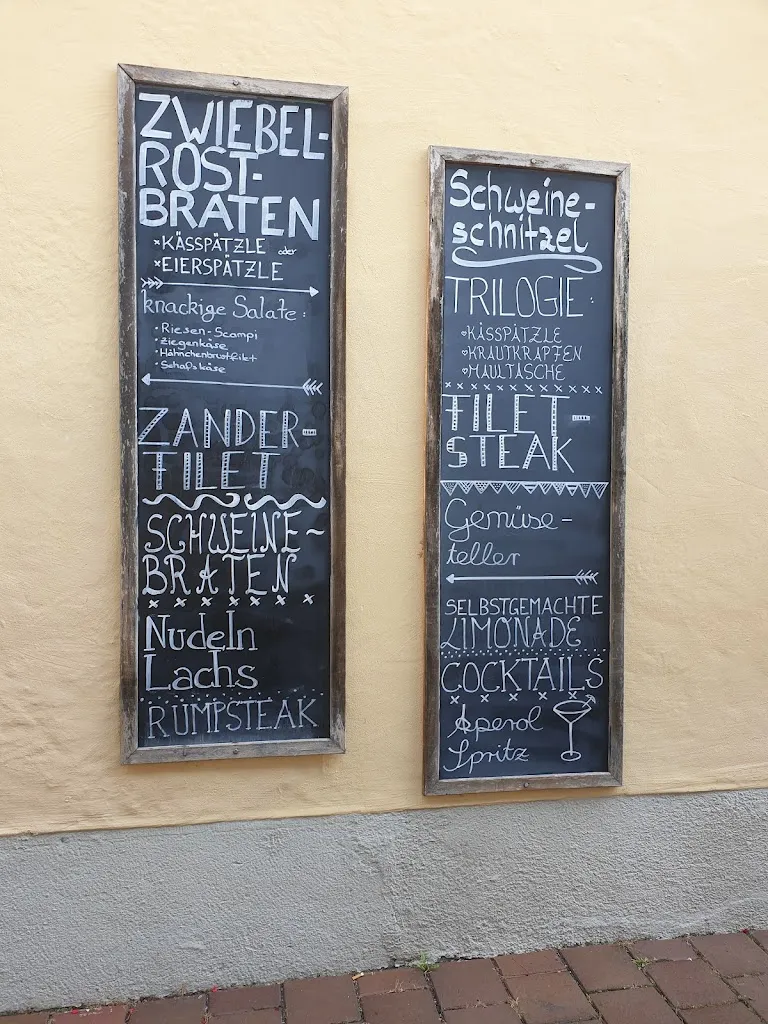 ZWIEBEL-
ROST-
BRATEN
×KÄSSPÄTZLE oder
×EIERSPÄTZLE
knackige Salate:
·Riesen-Scampi
·Ziegenkäse
·Hähnchenbrustfilet
·Schafskäse
ZANDER-
FILET
SCHWEINE-
BRATEN
Nudeln
Lachs
RUMPSTEAK
Schweine-
schnitzel
TRILOGIE:
♥KÄSSPÄTZLE
♥KRAUTKRAPFEN
♥MAULTASCHE
FILET-
STEAK
Gemüse-
teller
SELBSTGEMACHTE
LIMONADE
COCKTAILS
Aperol
Spritz